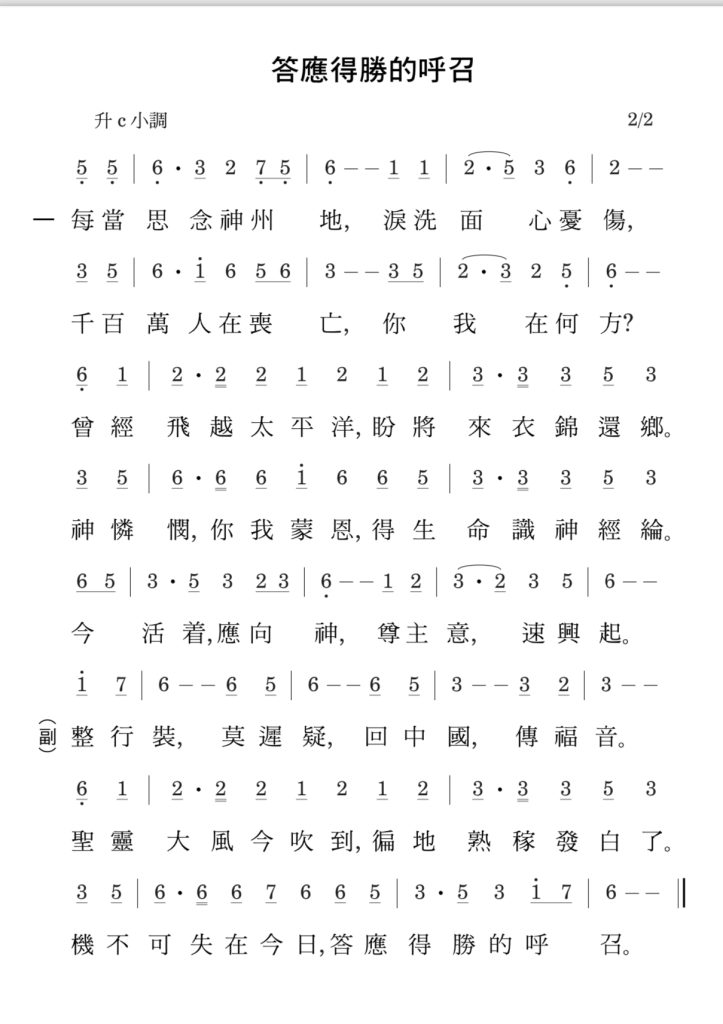 答應得勝的呼召
升 c 小調 2/2
5 5 | 6 · 3 2 7 5 | 6 – – 1 1 | 2 · 5 3 6 | 2 – –
一 每當 思 念神州 地, 淚洗 面 心憂 傷,
3 5 | 6 · 1 6 5 6 | 3 – – 3 5 | 2 · 3 2 5 | 6 – –
千百 萬 人在喪 亡, 你 我 在何 方?
6 1 | 2 · 2 2 1 2 1 2 | 3 · 3 3 5 3
曾 經 飛 越 太 平 洋, 盼 將 來 衣 錦 還 鄉。
3 5 | 6 · 6 6 1 6 6 5 | 3 · 3 3 5 3
神 憐 憫, 你 我 蒙 恩, 得 生 命 識 神 經 綸。
6 5 | 3 · 5 3 2 3 | 6 – – 1 2 | 3 · 2 3 5 | 6 – –
今 活 着, 應 向 神, 尊主 意, 速 興 起。
1 7 | 6 – – 6 5 | 6 – – 6 5 | 3 – – 3 2 | 3 – –
(副) 整 行 裝, 莫 遲 疑, 回 中 國, 傳 福 音。
6 1 | 2 · 2 2 1 2 1 2 | 3 · 3 3 5 3
聖 靈 大 風 今 吹 到, 徧 地 熟 稼 發 白 了。
3 5 | 6 · 6 6 7 6 6 5 | 3 · 5 3 1 7 | 6 – – ‖
機 不 可 失 在 今 日, 答 應 得 勝 的 呼 召。